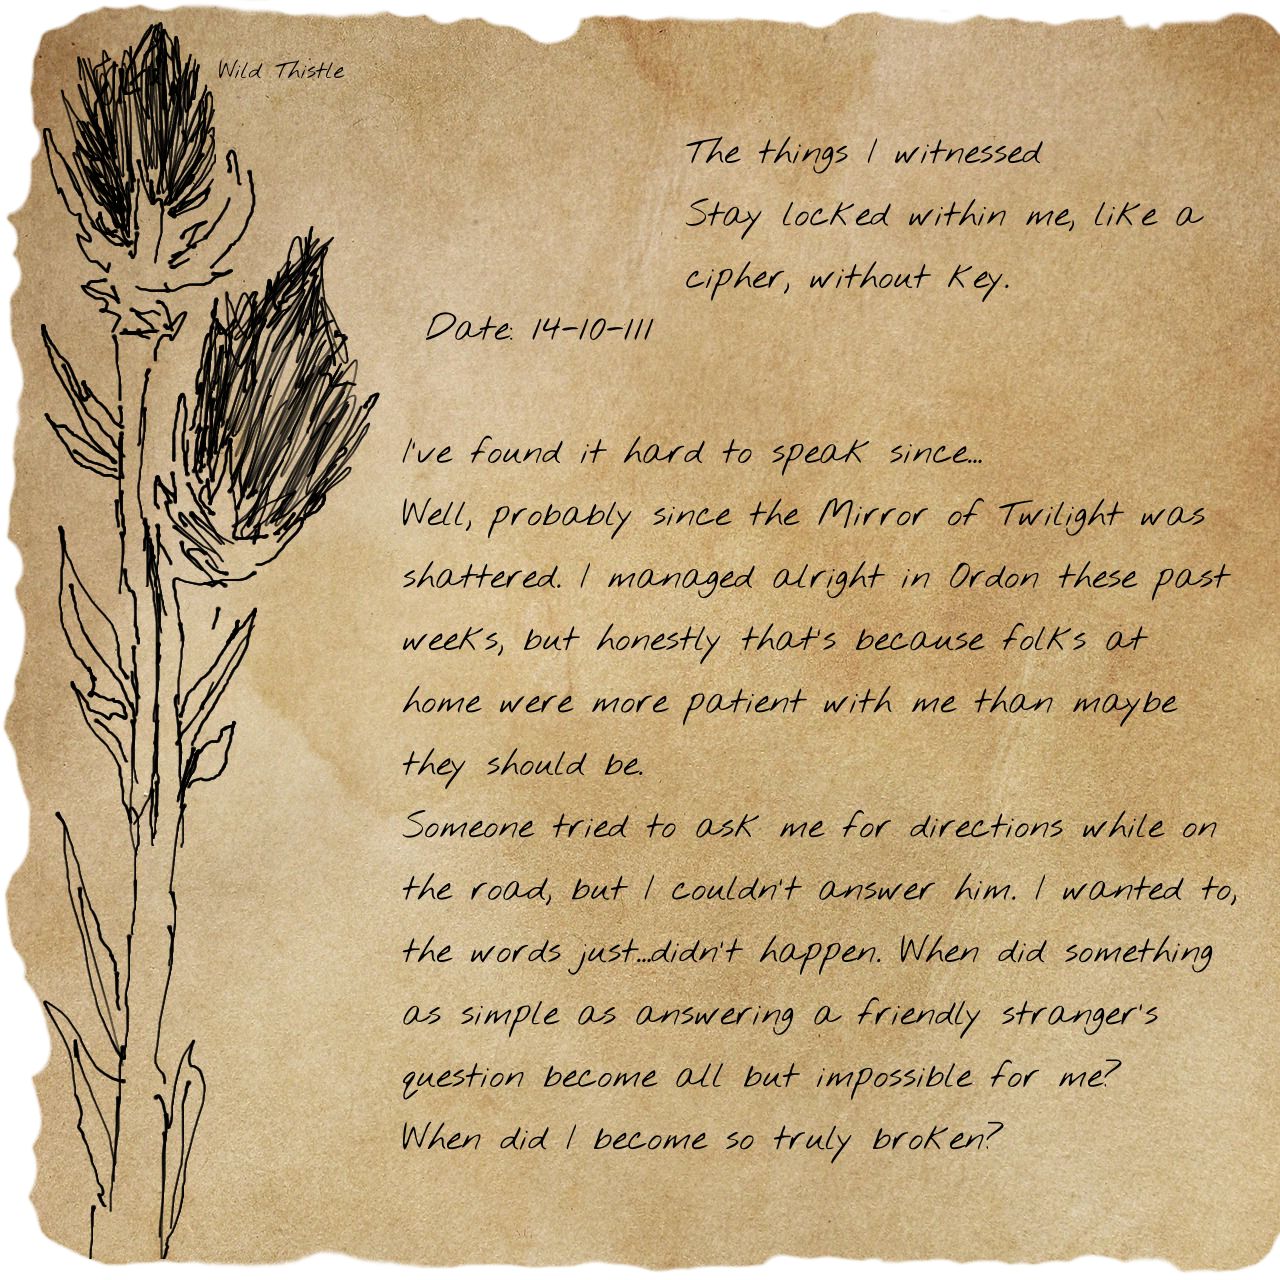 Wild Thistle
The things I witnessed
Stay locked within me, like a
cipher, without key.
Date: 14-10-111
I've found it hard to speak since...
Well, probably since the Mirror of Twilight was
shattered. I managed alright in Ordon these past
weeks, but honestly that's because folks at
home were more patient with me than maybe
they should be.
Someone tried to ask me for directions while on
the road, but I couldn't answer him. I wanted to,
the words just...didn't happen. When did something
as simple as answering a friendly stranger's
question become all but impossible for me?
When did I become so truly broken?